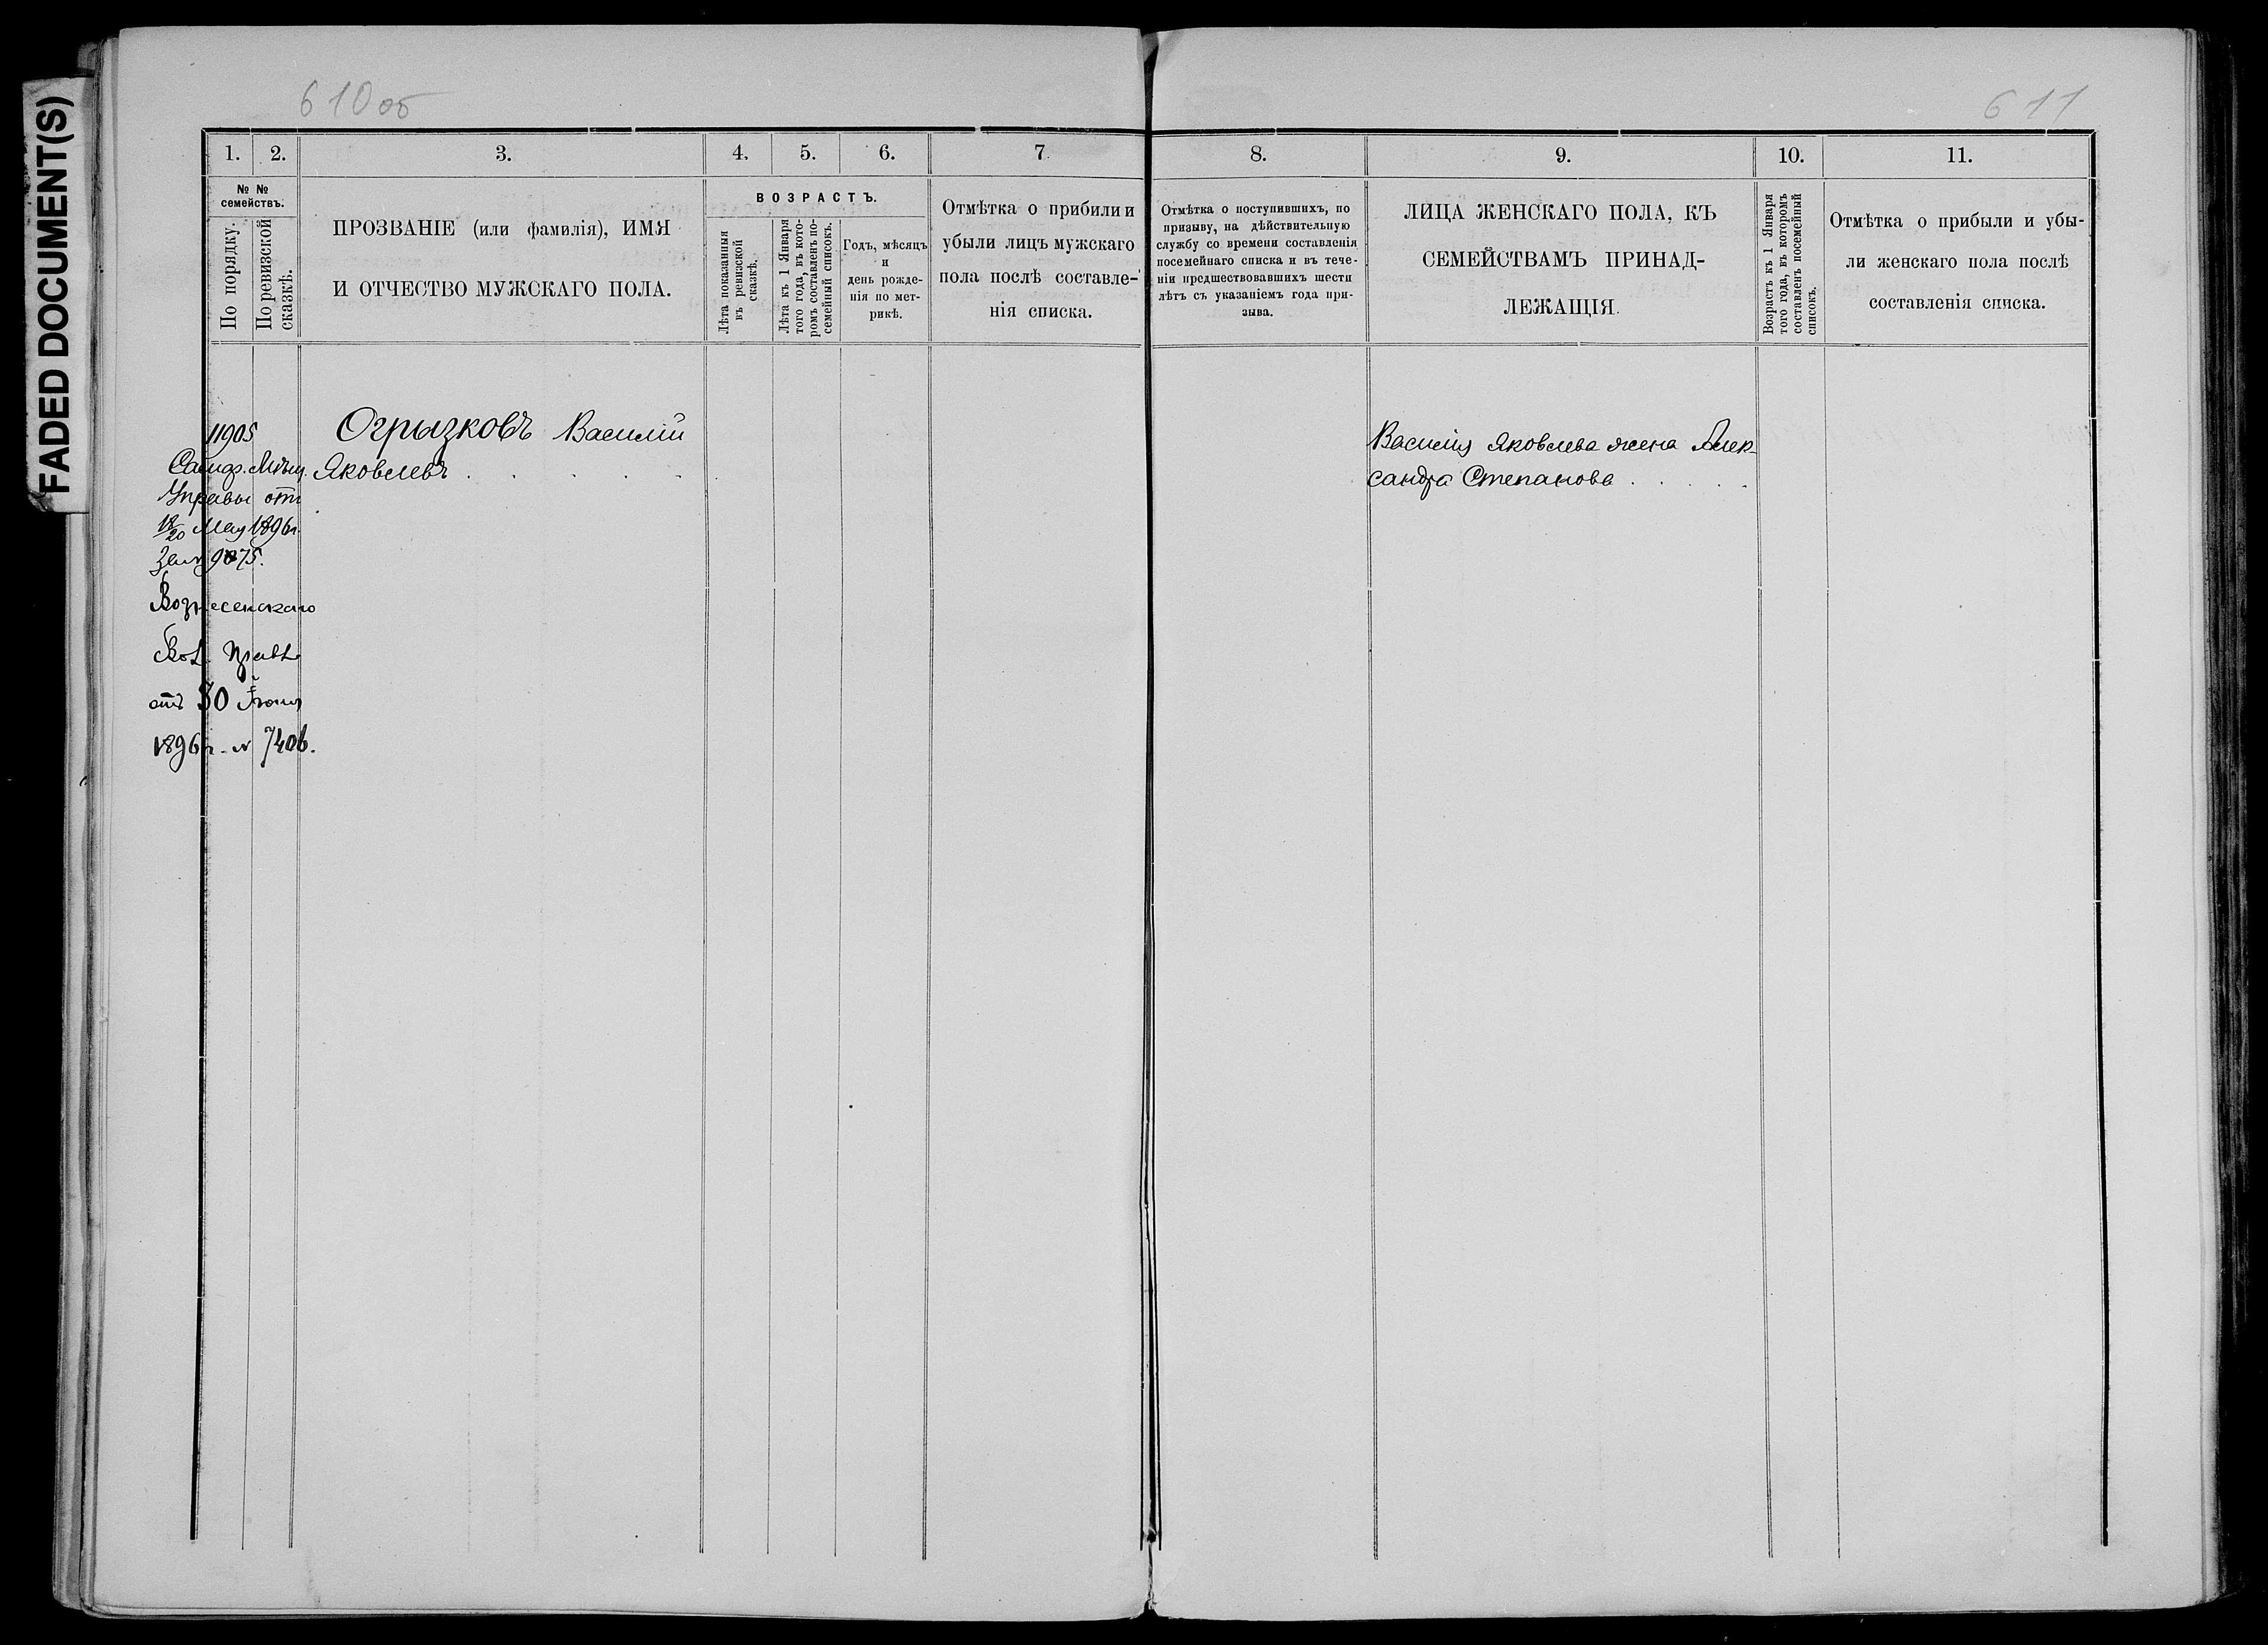 FADED DOCUMENT(S)
610об
611
1. 2. 3. 4. 5. 6. 7
8. 9. 10. 11.
№ №
семействъ.
По порядку.
По ревизской
сказкѣ.
ПРОЗВАНІЕ (или фамилія), ИМЯ
И ОТЧЕСТВО МУЖСКАГО ПОЛА.
ВОЗРАСТЪ.
Лѣта показанныя
въ ревизской
сказкѣ.
Лѣта къ 1 Января
того года, въ кото-
ромъ составленъ по-
семейный списокъ.
Годъ, мѣсяцъ
и
день рожде-
нія по мет-
рикѣ.
Отмѣтка о прибили и
убыли лицъ мужскаго
пола послѣ составле-
нія списка.
Отмѣтка о поступившихъ, по
призыву, на дѣйствительную
службу со времени составленія
посемейнаго списка и въ тече-
ніи предшествовавшихъ шести
лѣтъ съ указаніемъ года при-
зыва.
ЛИЦА ЖЕНСКАГО ПОЛА, КЪ
СЕМЕЙСТВАМЪ ПРИНАД-
ЛЕЖАЩІЯ.
Возрастъ къ 1 Января
того года, въ которомъ
составленъ посемейный
списокъ.
Отмѣтка о прибыли и убы-
ли женскаго пола послѣ
составленія списка.
11905
Мѣщ.
Управы отъ
18/20 Мая 1896 г.
9075.
Вознесенскаго
Вол. Правл.
отъ 30 Іюня
1896 г. № 7406.
Огрызковъ Василій
Яковлевъ . . . . .
Василія Яковлева жена Алек-
сандра Степанова . . . . .